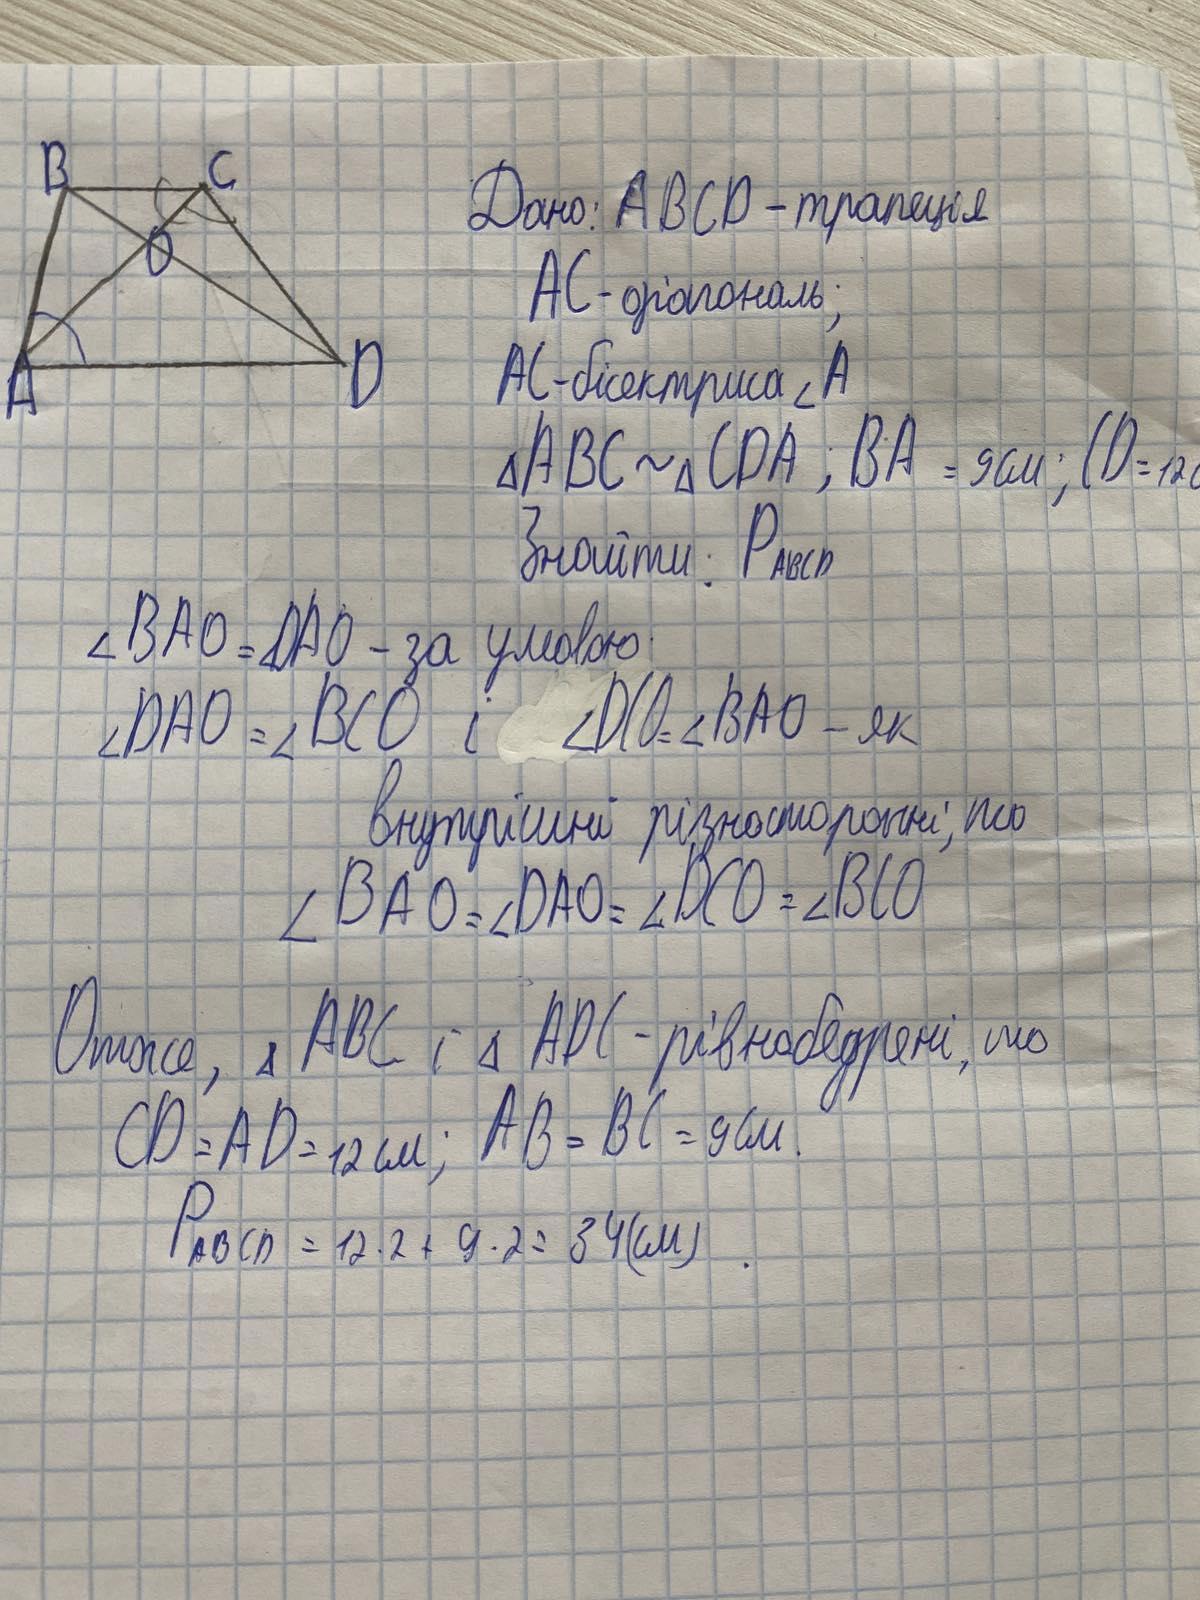 B C
O
A D
Дано: ABCD - трапеція
AC - діагональ;
AC - бісектриса ∠A
△ABC ~ △CDA ; BA = 9см; CD = 12с
Знайти: P ABCD
∠BAO = ∠DAO - за умовою.
∠DAO = ∠BCO і ∠DCO = ∠BAO - як
внутрішні різносторонні, то
∠BAO = ∠DAO = ∠DCO = ∠BCO
Отже, △ABC і △ADC - рівнобедрені, то
CD = AD = 12см; AB = BC = 9см.
P ABCD = 12·2 + 9·2 = 34(см).